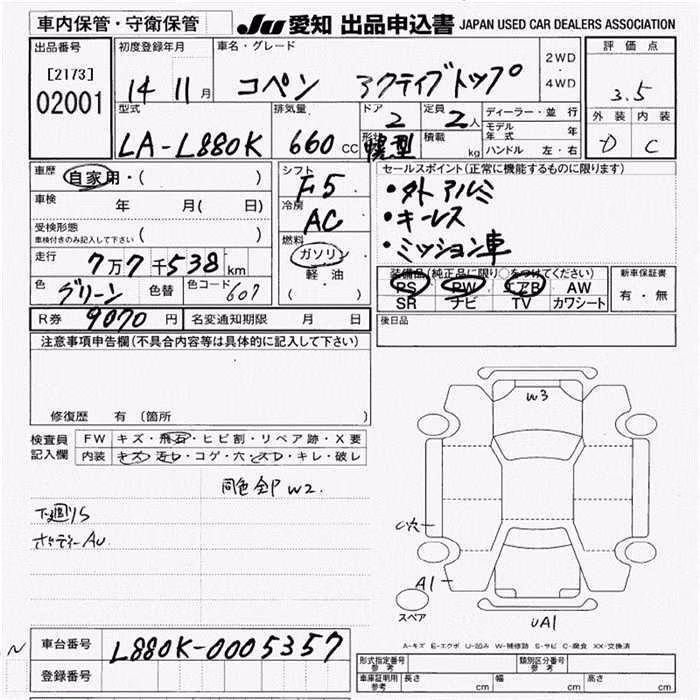 車内保管・守衛保管
JU 愛知 出品申込書 JAPAN USED CAR DEALERS ASSOCIATION
出品番号
[2173]
02001
初度登録年月
14 11月
車名・グレード
コペン アクティブトップ
2WD
・
4WD
評価点
3.5
外装 内装
D C
型式
LA-L880K
排気量
660 CC
ドア
2
形状
定員
2人
積載
kg
ディーラー・並行
モデル年式 年
ハンドル 左・右
車歴
自家用・( )
車検 年 月( 日)
受検形態
車検付きのみ記入して下さい ( )
走行 7万7千538km
色 グリーン 色替 色コード 607
シフト
F5
冷房
AC
燃料
ガソリン
・
軽油
( )
セールスポイント(正常に機能するものに限ります)
・外アルミ
・キーレス
・ミッション車
装備品(純正品に限り○をつけてください)
PS PW エアB AW
SR ナビ TV カワシート
新車保証書
有・無
R券 9070円 名変通知期限 月 日
後日品
注意事項申告欄(不具合内容等は具体的に記入して下さい)
修復歴 有(箇所 )
検査員記入欄
FW キズ・飛石・ヒビ割・リペア跡・X要
内装 キズ・汚レ・コゲ・穴・スレ・キレ・破レ
同色全P W2.
下廻りS
ボディーAU
W3
A1
UA1
スペア
A-キズ E-エクボ U-凹み W-補修跡 S-サビ C-腐食 XX-交換済
N
車台番号 L880K-0005357
登録番号
形式指定番号 参考
類別区分番号 参考
車庫証明用 参考 長さ cm 幅 cm 高さ cm